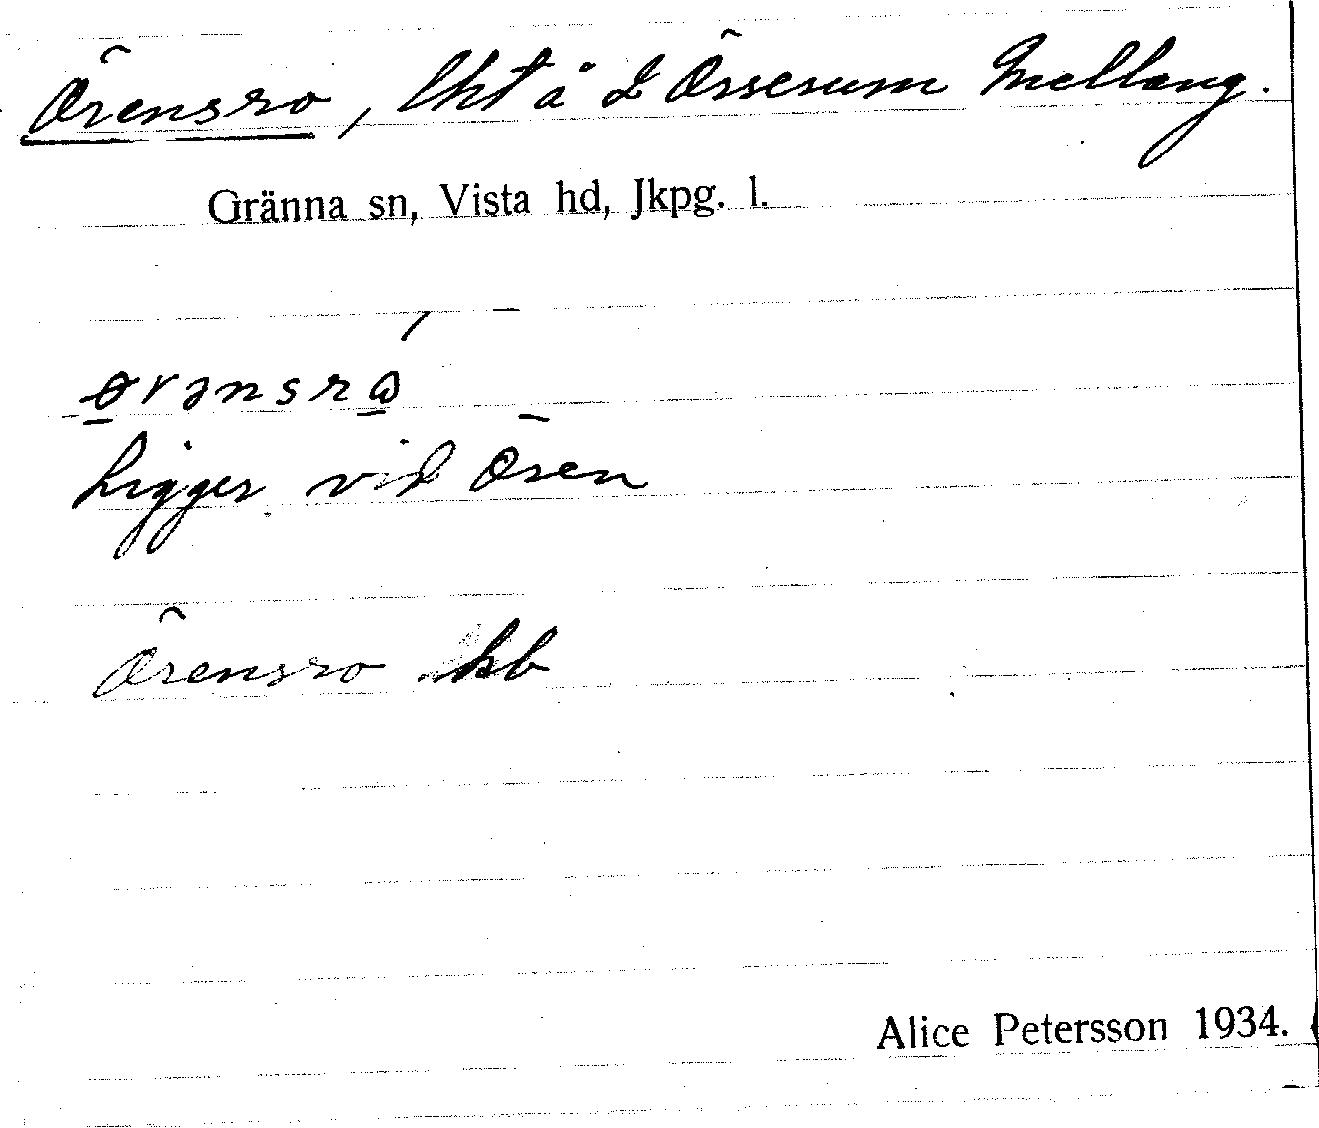 Örensro, lht å L Örserum Mellang.
Gränna sn, Vista hd, Jkpg. l.
ørənsrω
Ligger vid Ören
Örensro kb
Alice Petersson 1934.